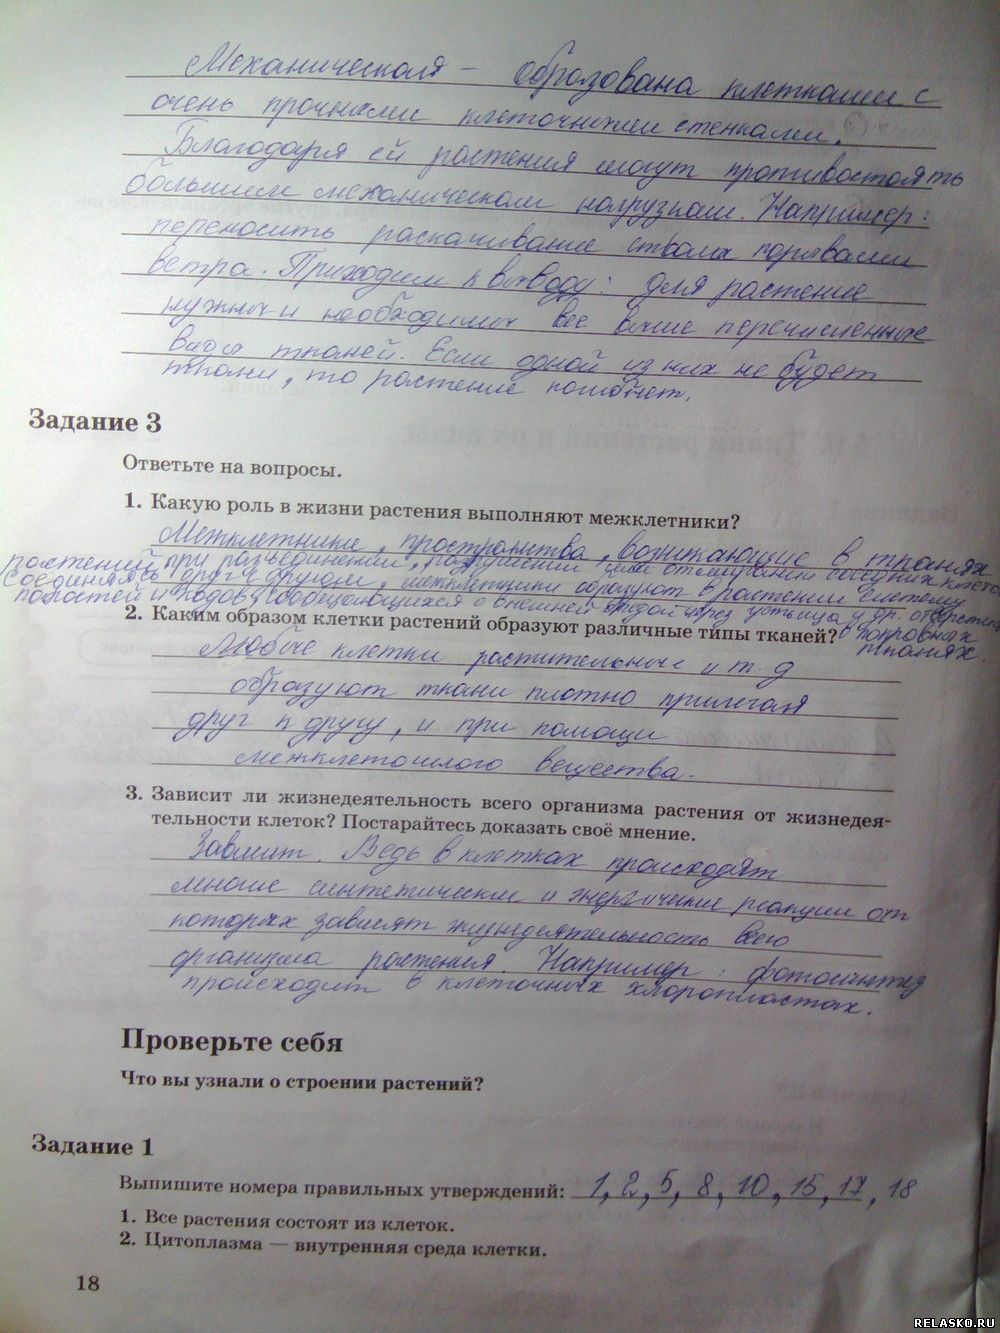 Механическая - образована клетками с
очень прочными клеточными стенками.
Благодаря ей растения могут противостоять
большим механическим нагрузкам. Например:
переносить раскачивание ствола порывами
ветра. Приходим к выводу: для растение
нужны и необходимы все выше перечисленные
виды тканей. Если одной из них не будет
ткани, то растение погибнет.
Задание 3
Ответьте на вопросы.
1. Какую роль в жизни растения выполняют межклетники?
Межклетники, пространства, возникающие в тканях
растений при разъединении, разрушении или отмирании соседних клеток
Соединяясь друг с другом, межклетники образуют в растении систему
полостей и ходов, сообщающихся с внешней средой через устьица и др. отверстия
в покровных
тканях.
2. Каким образом клетки растений образуют различные типы тканей?
Любые клетки растительные и т.д
образуют ткани плотно прилегая
друг к другу, и при помощи
межклеточного вещества.
3. Зависит ли жизнедеятельность всего организма растения от жизнедея-
тельности клеток? Постарайтесь доказать своё мнение.
Зависит. Ведь в клетках происходят
многие синтетические и реакции от
которых зависят жизнедеятельность всего
организма растения. Например: фотосинтез
происходит в клеточных хлоропластах.
Проверьте себя
Что вы узнали о строении растений?
Задание 1
Выпишите номера правильных утверждений: 1, 2, 5, 8, 10, 15, 17, 18
1. Все растения состоят из клеток.
2. Цитоплазма — внутренняя среда клетки.
18
RELASKO.RU